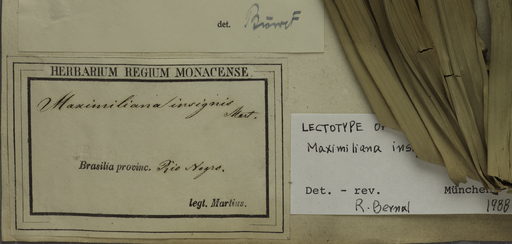 det.
HERBARIUM REGIUM MONACENSE.
Maximiliana insignis
Mart.
Brasilia provinc. Rio Negro.
legt. Martius.
LECTOTYPE OF
Maximiliana ins
Det. - rev. München
R. Bernal 1988